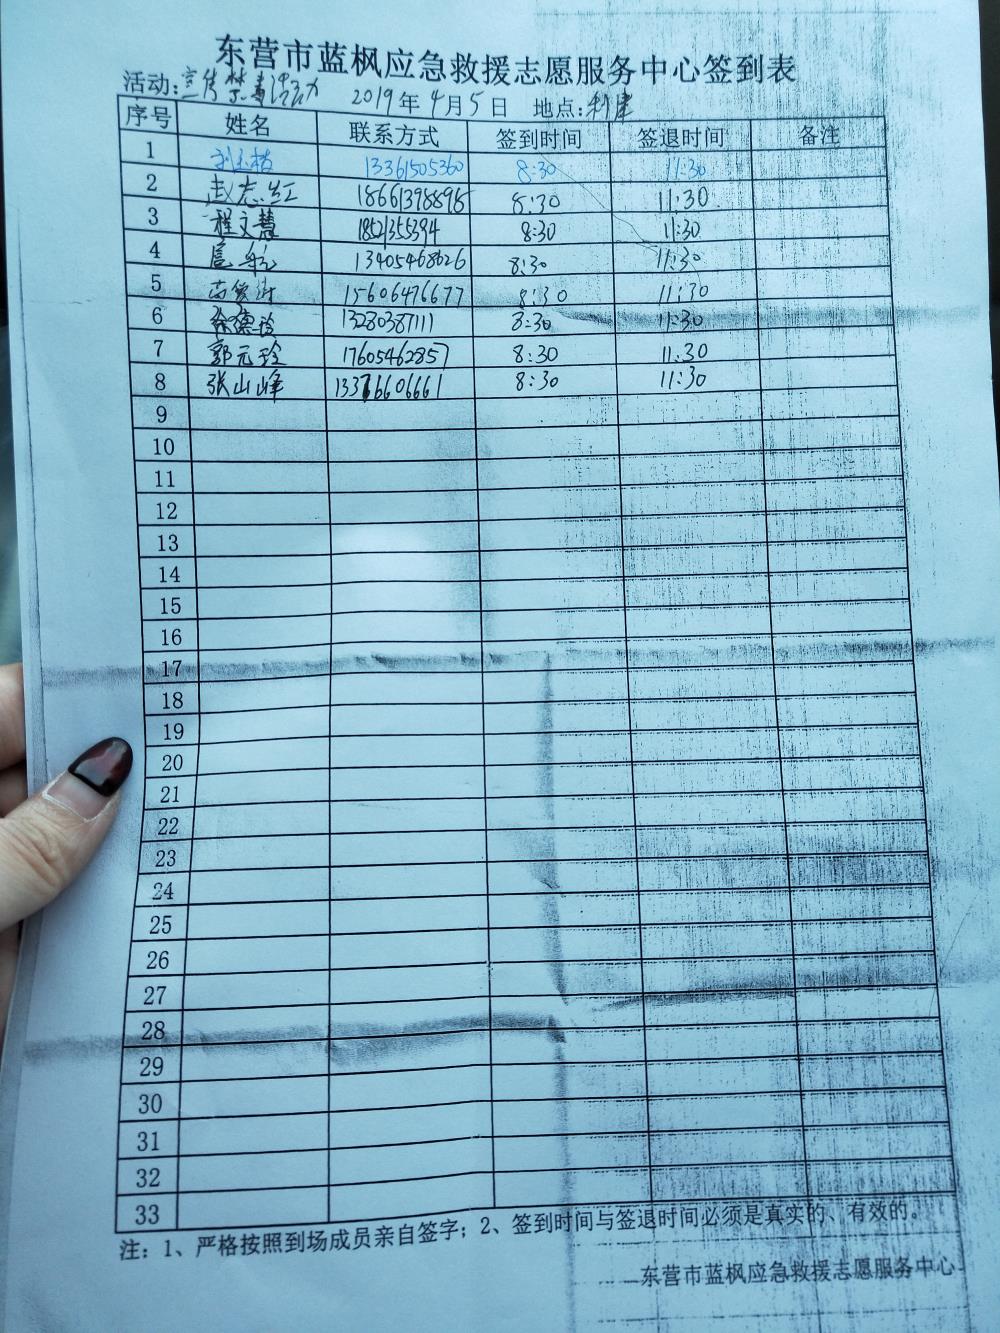 东营市蓝枫应急救援志愿服务中心签到表
活动:宣传禁毒活动 2019年4月5日 地点:利津
序号 姓名 联系方式 签到时间 签退时间 备注
1 刘玉枝 13361505360 8:30 11:30
2 赵志红 18661398898 8:30 11:30
3 程文慧 18521355394 8:30 11:30
4 扈航 13405468626 8:30 11:30
5 15606476677 8:30 11:30
6 徐德玲 13280387111 8:30 11:30
7 郭元玲 17605462857 8:30 11:30
8 张山峰 13376606661 8:30 11:30
9
10
11
12
13
14
15
16
17
18
19
20
21
22
23
24
25
26
27
28
29
30
31
32
33
注：1、严格按照到场成员亲自签字；2、签到时间与签退时间必须是真实的、有效的。
东营市蓝枫应急救援志愿服务中心